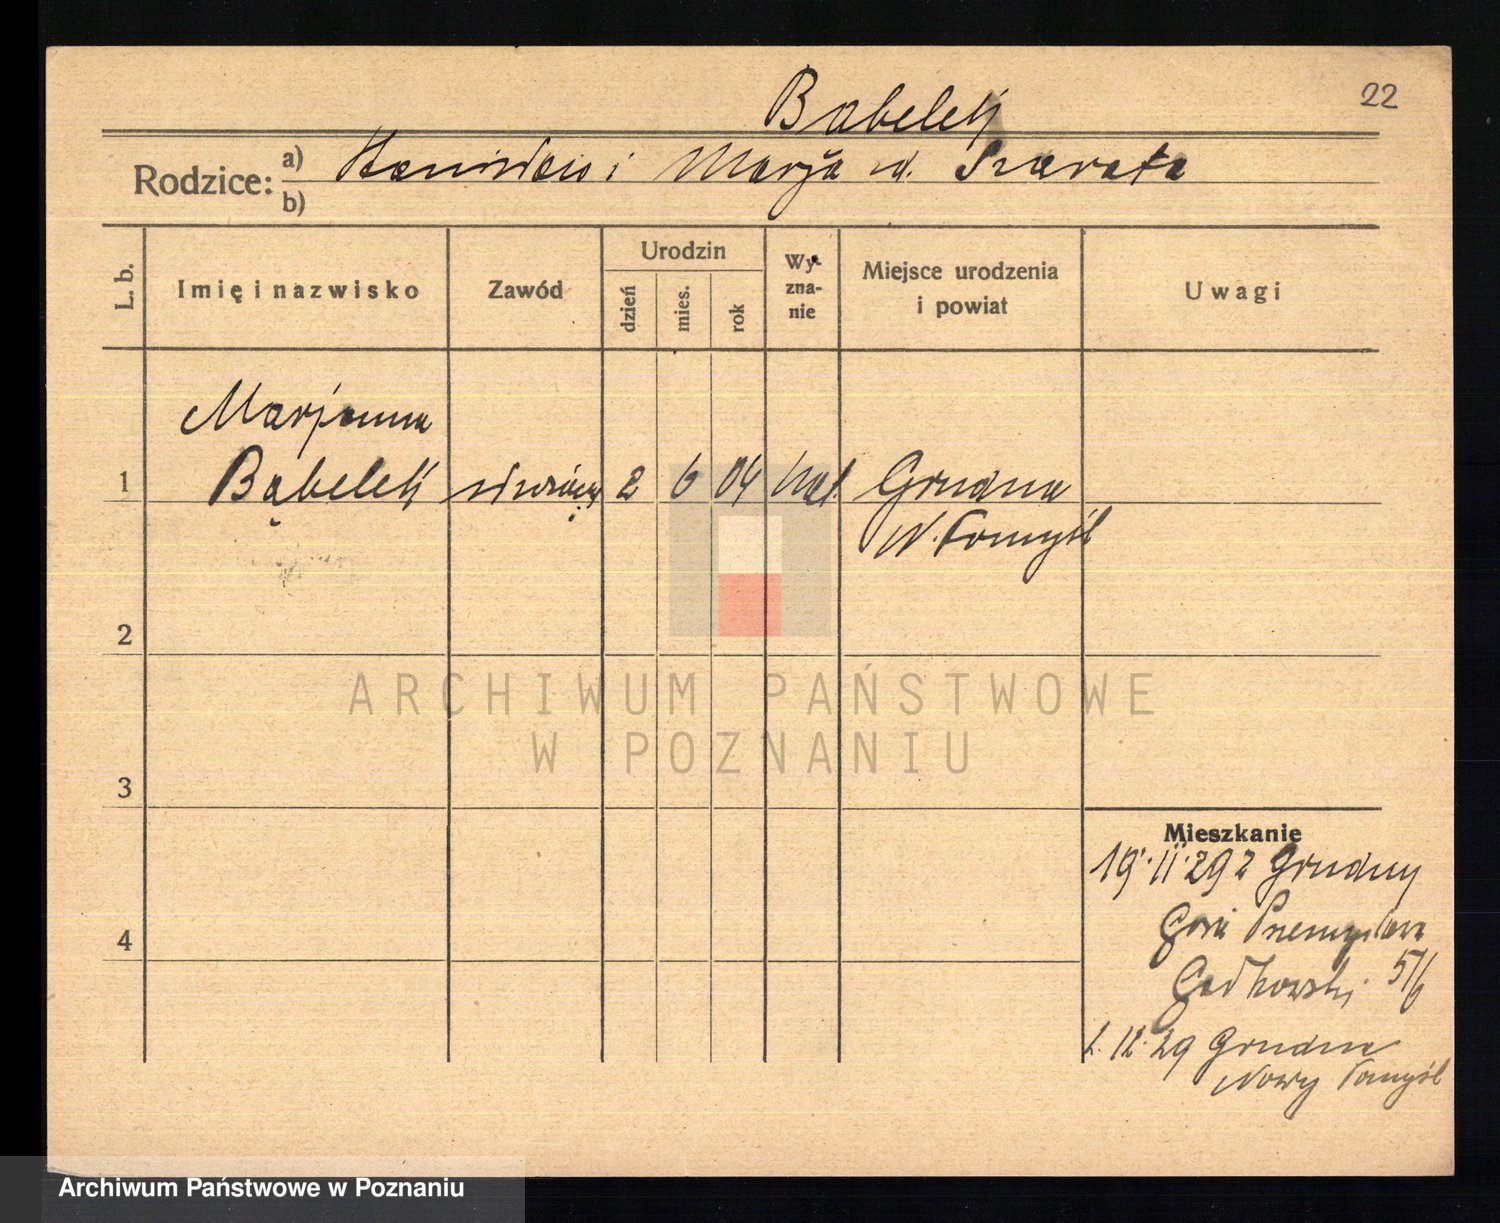 22
Bąbelek
Rodzice: a) Stanisław i Marja zd. Szarata
b)
L. b.
Imię i nazwisko
Zawód
Urodzin
dzień
mies.
rok
Wy-
zna-
nie
Miejsce urodzenia
i powiat
Uwagi
Marjanna
1 Bąbelek służąca 2 6 04 kat. Grudna
N. Tomyśl
2
3
4
Mieszkanie
19.11.29 z Grudny
Góra Przemysława
5/6
2.12.29 Grudna
Nowy Tomyśl
ARCHIWUM PAŃSTWOWE
W POZNANIU
Archiwum Państwowe w Poznaniu